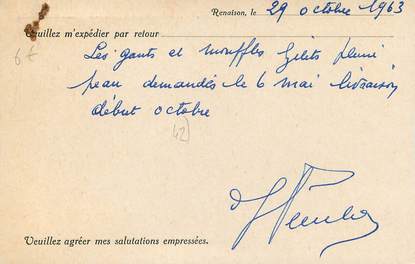 Renaison, le 29 octobre 1963
Veuillez m'expédier par retour
6f
Les gants et mouffles Gilets
peau demandés le 6 mai livraison
début octobre
42
Veuillez agréer mes salutations empressées.